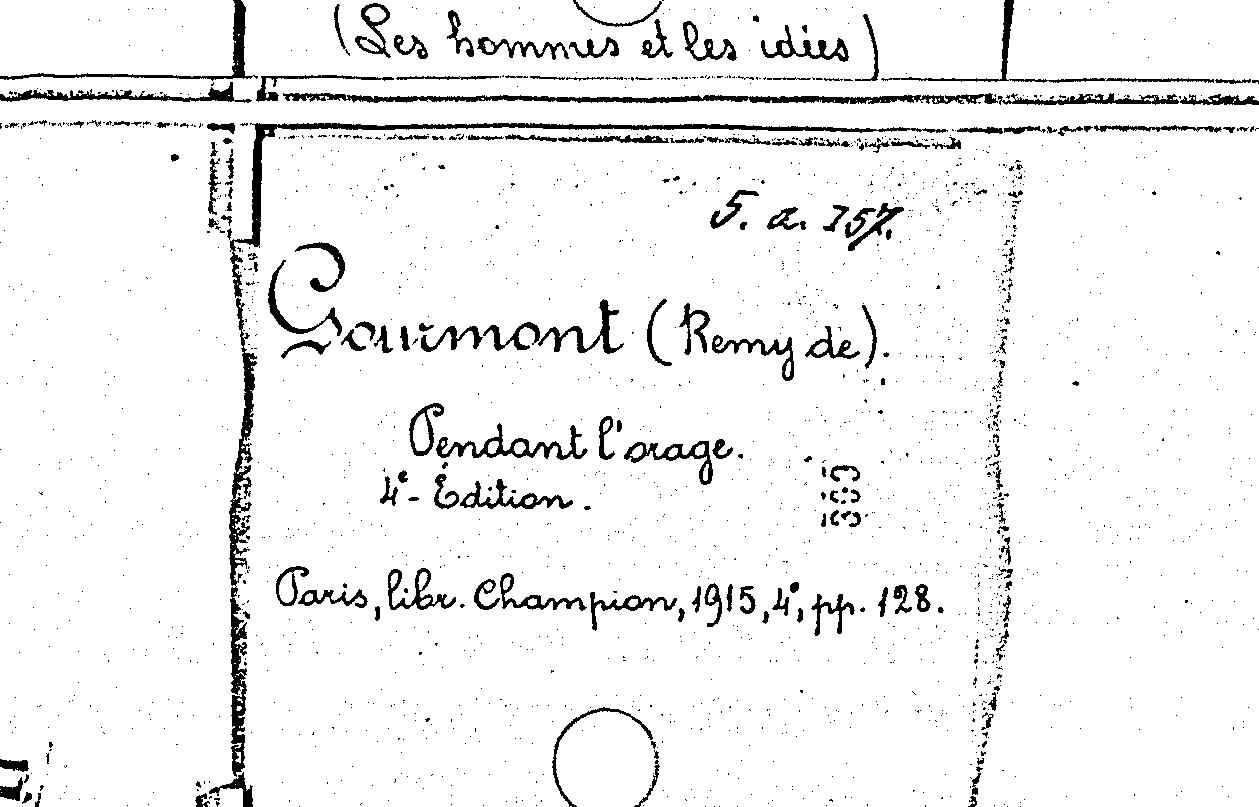 (Les hommes et les idées)
5. a. 357.
Gourmont (Remy de).
Pendant l'orage.
4e- Édition.
Paris, libr. Champion, 1915, 4°, pp. 128.